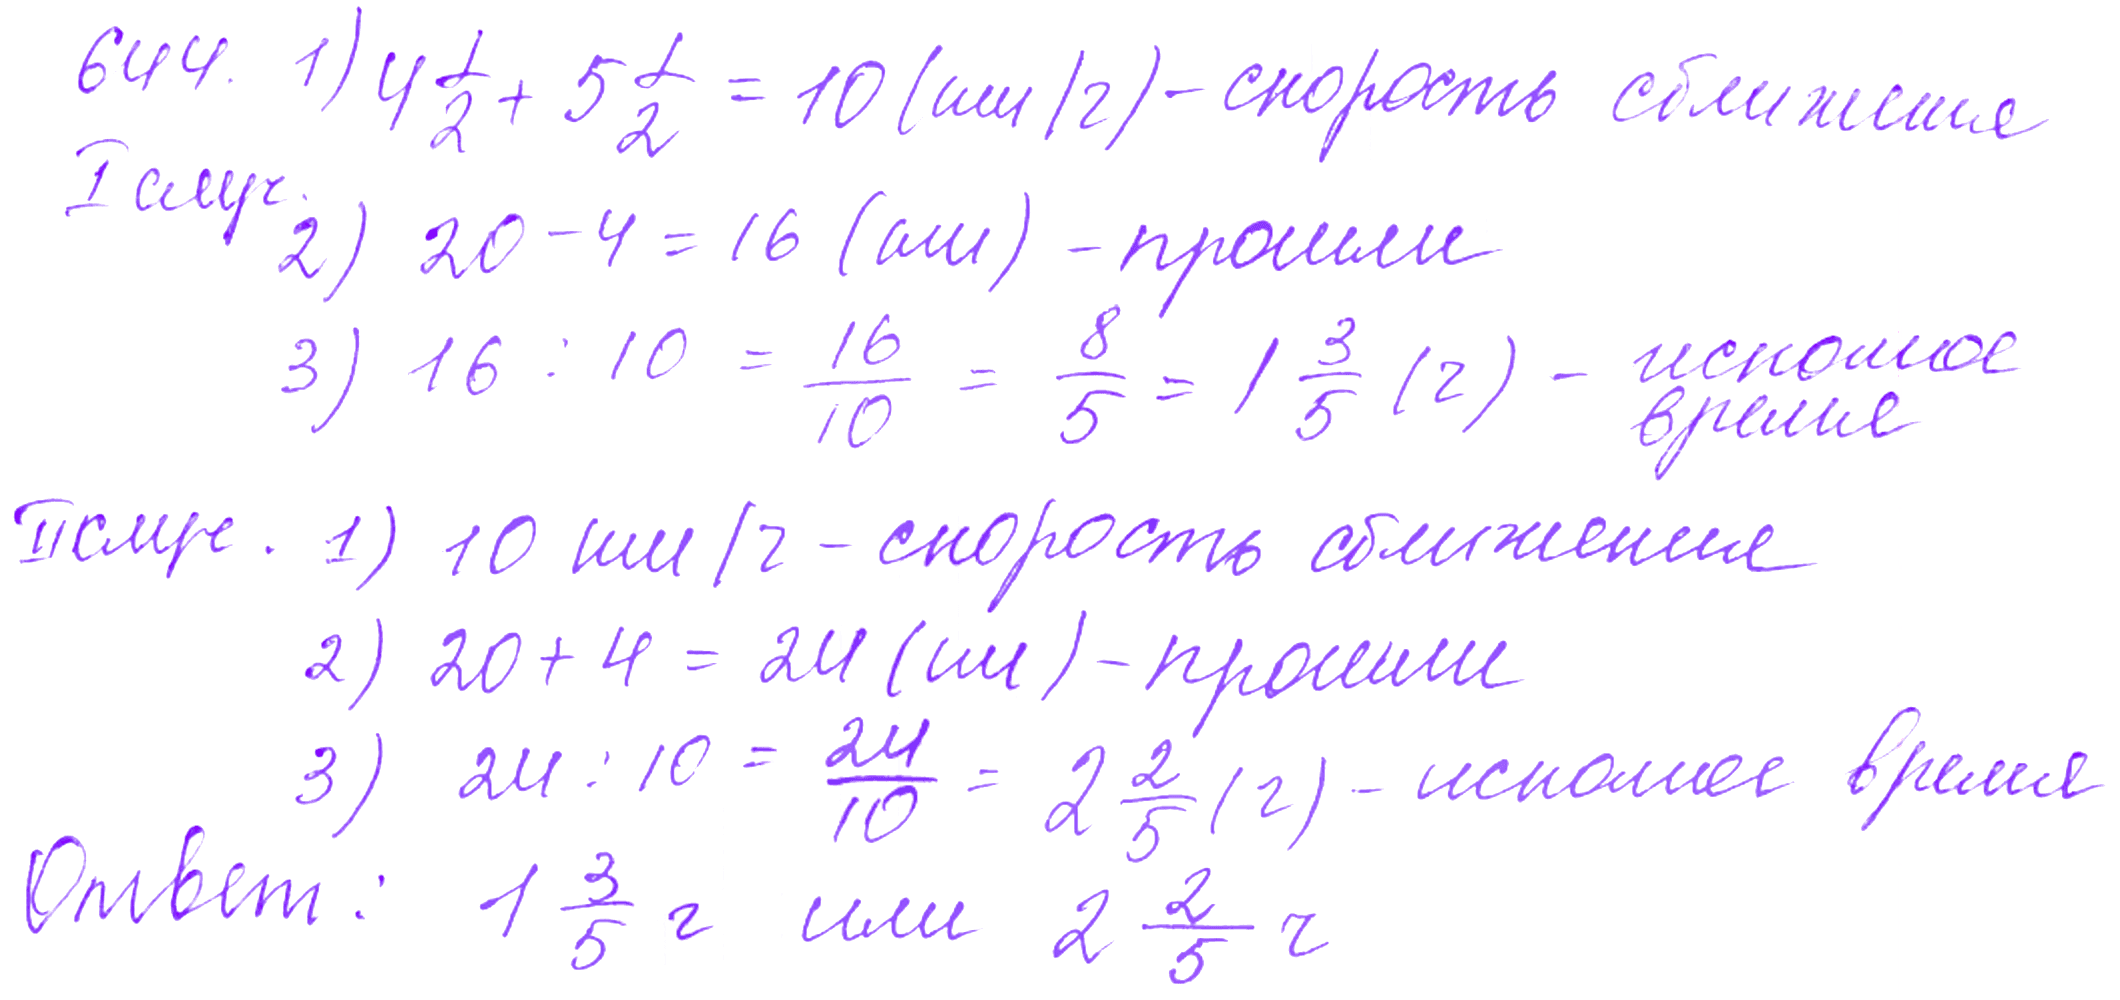 644. 1) 4 1/2 + 5 1/2 = 10 (км/ч) - скорость сближения
I случ.
2) 20 - 4 = 16 (км) - прошли
3) 16 : 10 = 16/10 = 8/5 = 1 3/5 (ч) - искомое
время
II случ. 1) 10 км/ч - скорость сближения
2) 20 + 4 = 24 (км) - прошли
3) 24 : 10 = 24/10 = 2 2/5 (ч) - искомое время
Ответ: 1 3/5 ч или 2 2/5 ч